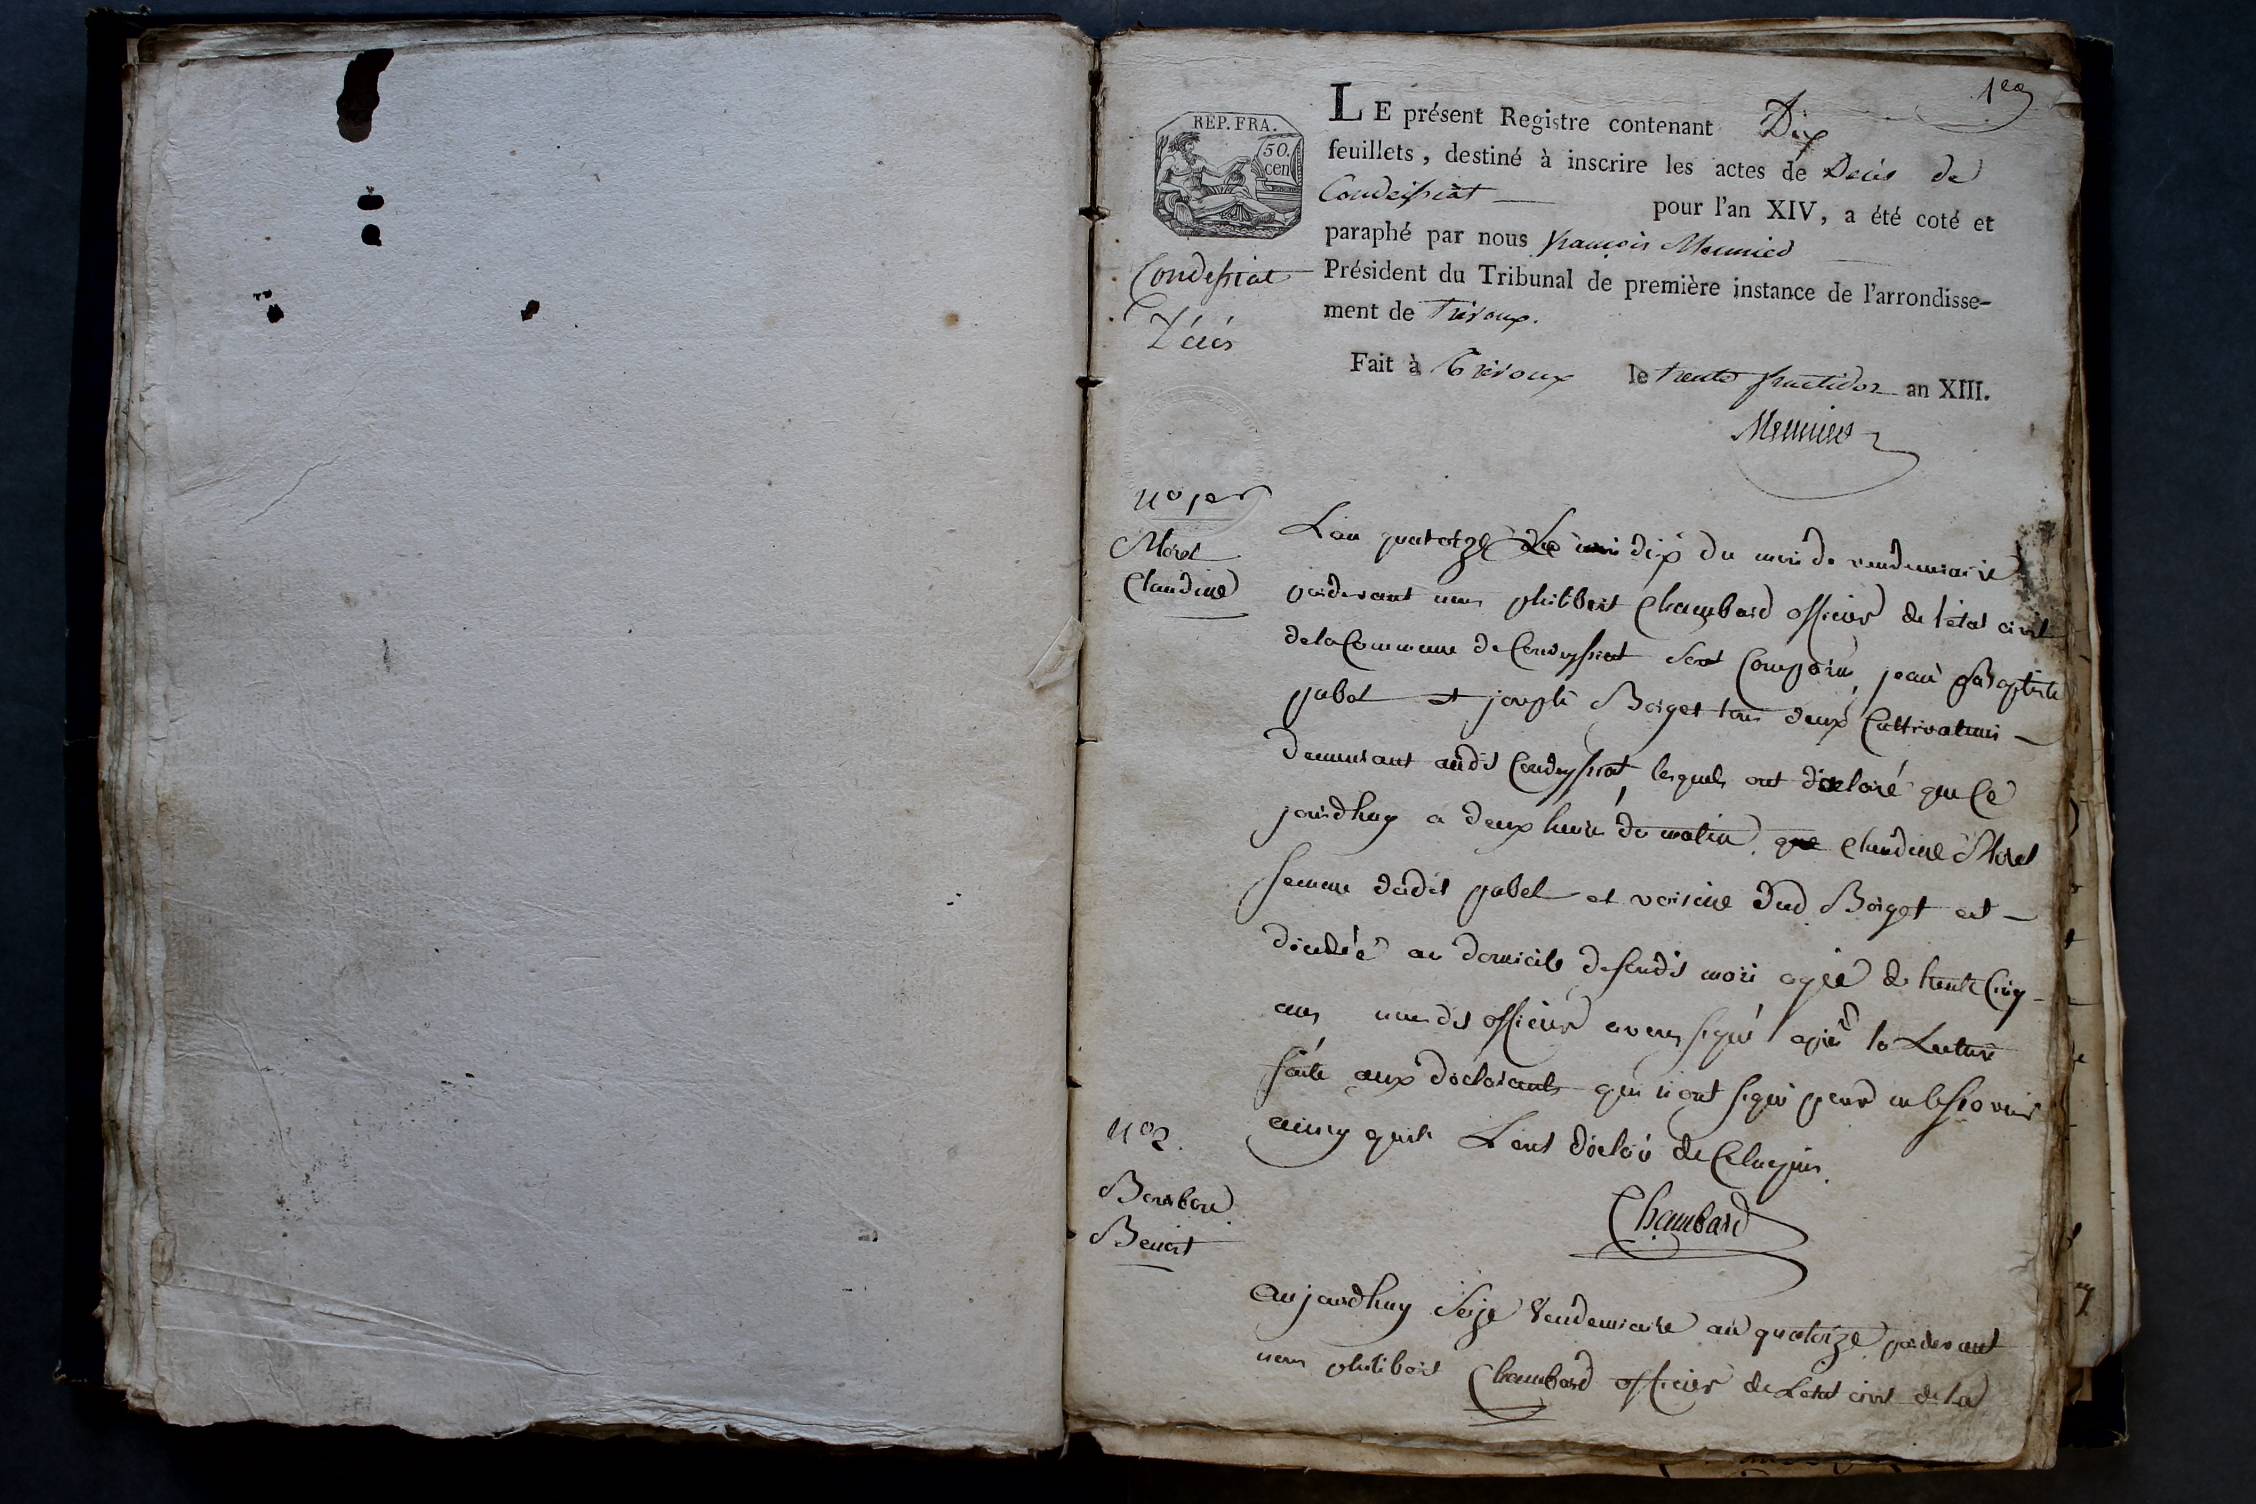 1er
REP. FRA.
50.
cen
LE présent Registre contenant Dix
feuillets, destiné à inscrire les actes de Décès de
Condeissiat pour l'an XIV, a été coté et
paraphé par nous françois Meunier
Président du Tribunal de première instance de l'arrondisse-
ment de Trevoux.
Fait à Trevoux le trente fructidor an XIII.
Meunier
Condessiat
Décés
n° 1er
Morel
Claudine
L'an quatorze Le dix du mois de vendemiaire
pardevant nous philibert Chambard officier de l'état civil
de la Commune de Condeyssiat sont Comparus, jean Baptiste
pabel et joseph Borget tous deux Cultivateurs
demeurant audit Condeyssiat, lesquels ont déclaré que Ce
jourdhuy a deux heures du matin que Claudine Morel
femme dudit pabel et voisine dud Borget est
décédée au domicile de sondit mari agée de trente Cinq
ans nousdit officier avons signé après la Lecture
faite aux déclarants qui n'ont signé pour ne le savoir
ainsy quils L'ont déclaré de Ce requis.
Chambard
n° 2.
Benoit
aujourdhuy seize Vendemiaire an quatorze pardevant
nous philibert Chambard officier de Letat civil de la